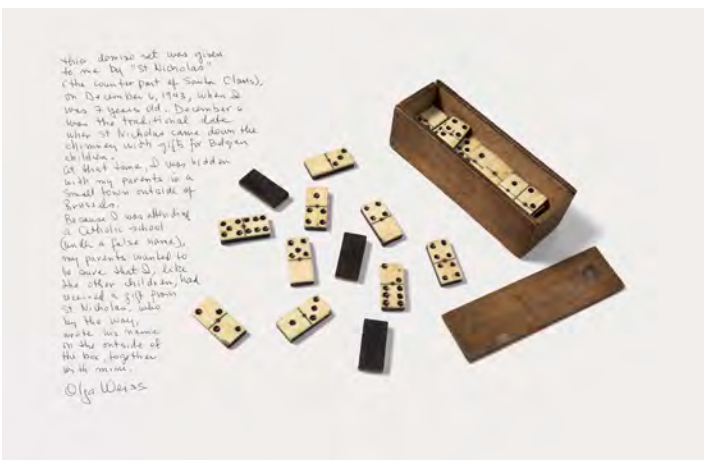 this domino set was given
to me by "St Nicholas"
(the counterpart of Santa Claus),
on December 6, 1943, when I
was 7 years old. December 6
was the traditional date
when St Nicholas came down the
chimney with gifts for Belgian
children.
At that time, I was hidden
with my parents in a
small town outside of
Brussels.
Because I was attending
a Catholic school
(under a false name),
my parents wanted to
be sure that I, like
the other children, had
received a gift from
St Nicholas, who
by the way,
wrote his name
on the outside of
the box, together
with mine.
Olga Weiss